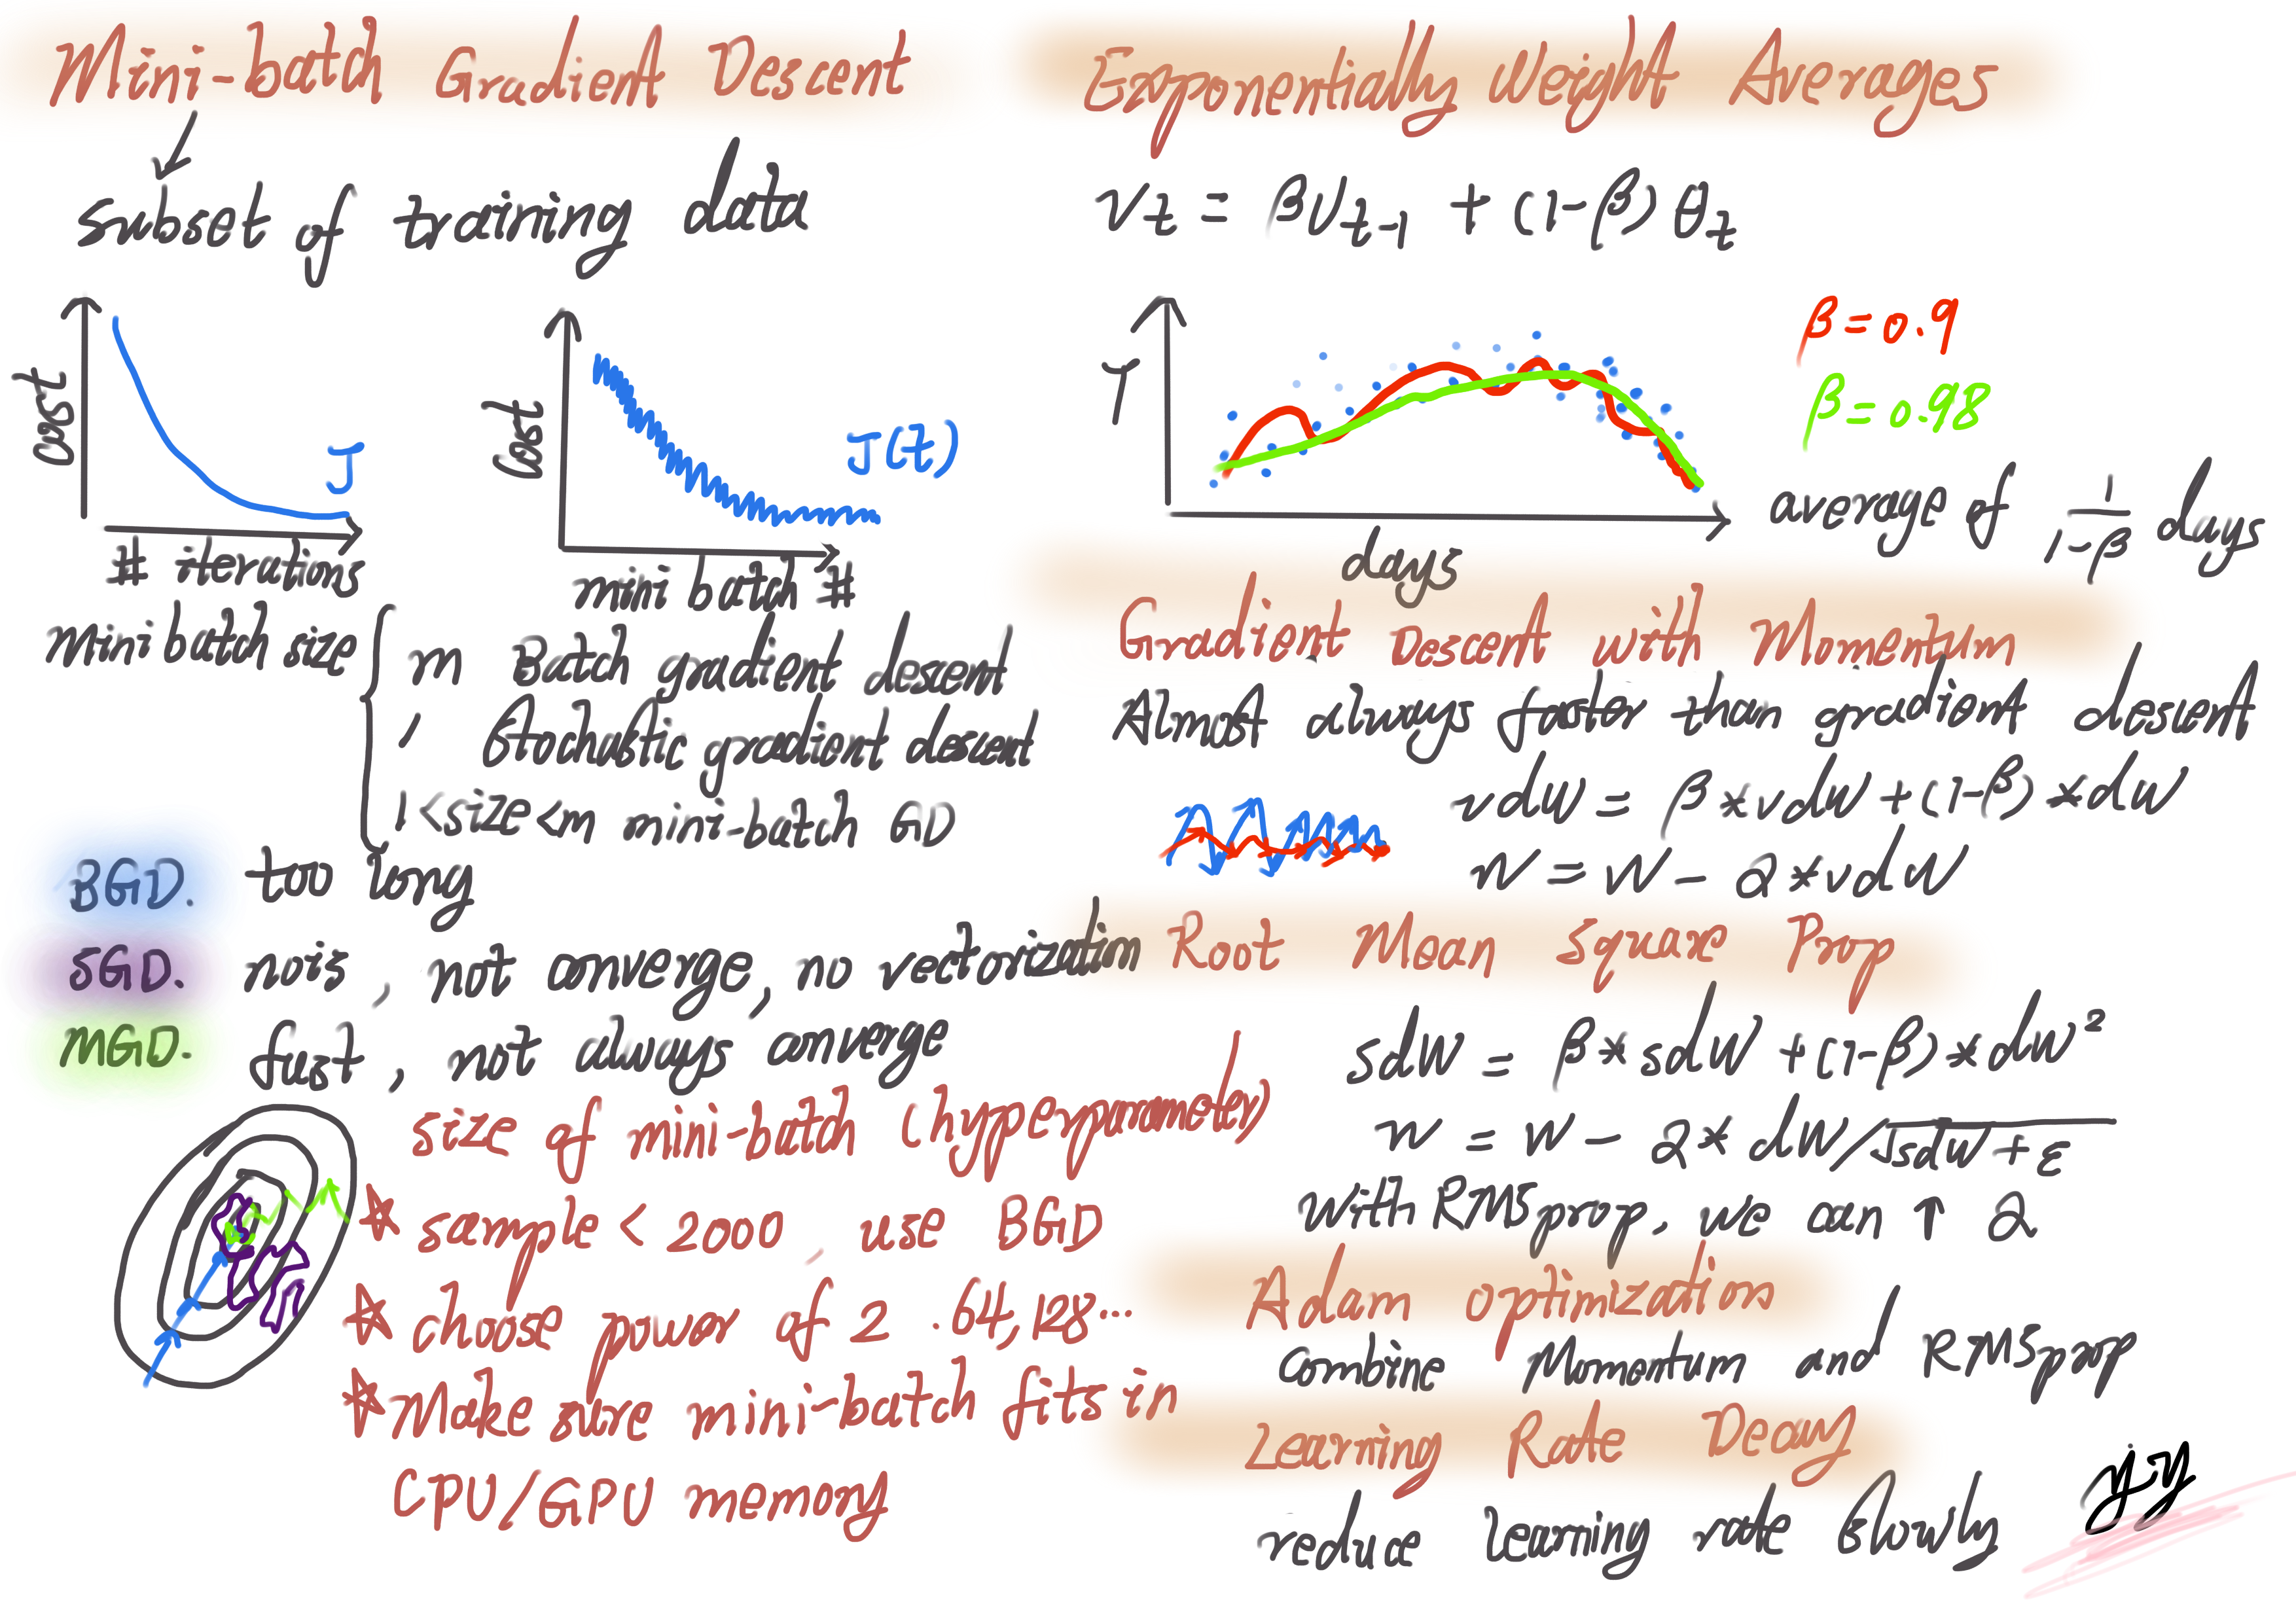 Mini-batch Gradient Descent
subset of training data
cost
J
# iterations
Cost
J(t)
mini batch #
Mini batch size
m Batch gradient descent
1 Stochastic gradient descent
1<size<m mini-batch GD
BGD. too long
SGD. nois, not converge, no vectorization
MGD. fast, not always converge
size of mini-batch (hyperparameter)
☆ sample < 2000, use BGD
☆ choose power of 2 .64,128...
☆ Make sure mini-batch fits in
CPU/GPU memory
Exponentially Weight Averages
Vt = βVt-1 + (1-β) θt
T
days
β=0.9
β=0.98
average of 1/(1-β) days
Gradient Descent with Momentum
Almost always faster than gradient descent
vdW = β*vdW+(1-β)*dW
W = W - α*vdW
Root Mean Square Prop
sdW = β*sdW+(1-β)*dW²
W = W - α*dW/√sdW+ε
With RMSprop, we can ↑ α
Adam optimization
Combine Momentum and RMSprop
Learning Rate Decay
reduce learning rate slowly
yjy